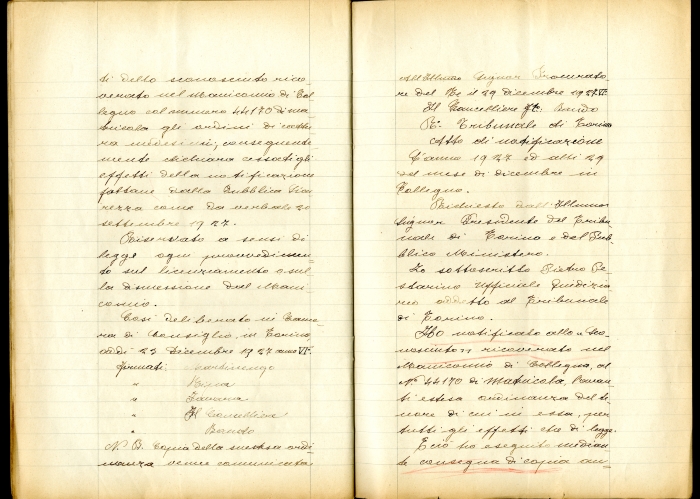 ti dello sconosciuto rico-
verato nel Manicomio di Col-
legno col numero 44170 di ma-
tricola gli ordini di cattu-
ra medesimi; conseguente-
mente dichiara cessati gli
effetti della notificazione
fattane dalla Pubblica Sicu-
rezza come da verbale 20
settembre 1927.
Riservato a sensi di
legge ogni provvedimen-
to sul licenziamento o sul-
la dimissione dal Mani-
comio.
Così deliberato in Came-
ra di Consiglio, in Torino
addì 23 dicembre 1927 anno VI°.
firmati:
" 
" Tavana
" Il Cancelliere
" Bardo
N. B. Copia della suestesa ordi-
nanza venne comunicata
All'Ill.mo Signor Procurato-
re del Re il 29 dicembre 1927 VI°.
Il Cancelliere f.to: Bardo
R.° Tribunale di Torino
Atto di notificazione
L'anno 1927 ed alli 29
del mese di dicembre in
Collegno.
Richiesto dall'Ill.mo
Signor Presidente del Tribu-
nale di Torino e dal Pub-
blico Ministero.
Io sottoscritto Pietro Pe-
starino Ufficiale Giudizia-
rio addetto al Tribunale
di Torino.
Ho notificato allo "Sco-
nosciuto" ricoverato nel
Manicomio di Collegno, al
N.° 44170 di Matricola, l'avan-
ti estesa ordinanza del te-
nore di cui in essa, per
tutti gli effetti che di legge.
E ciò ho eseguito median-
te consegna di copia au-